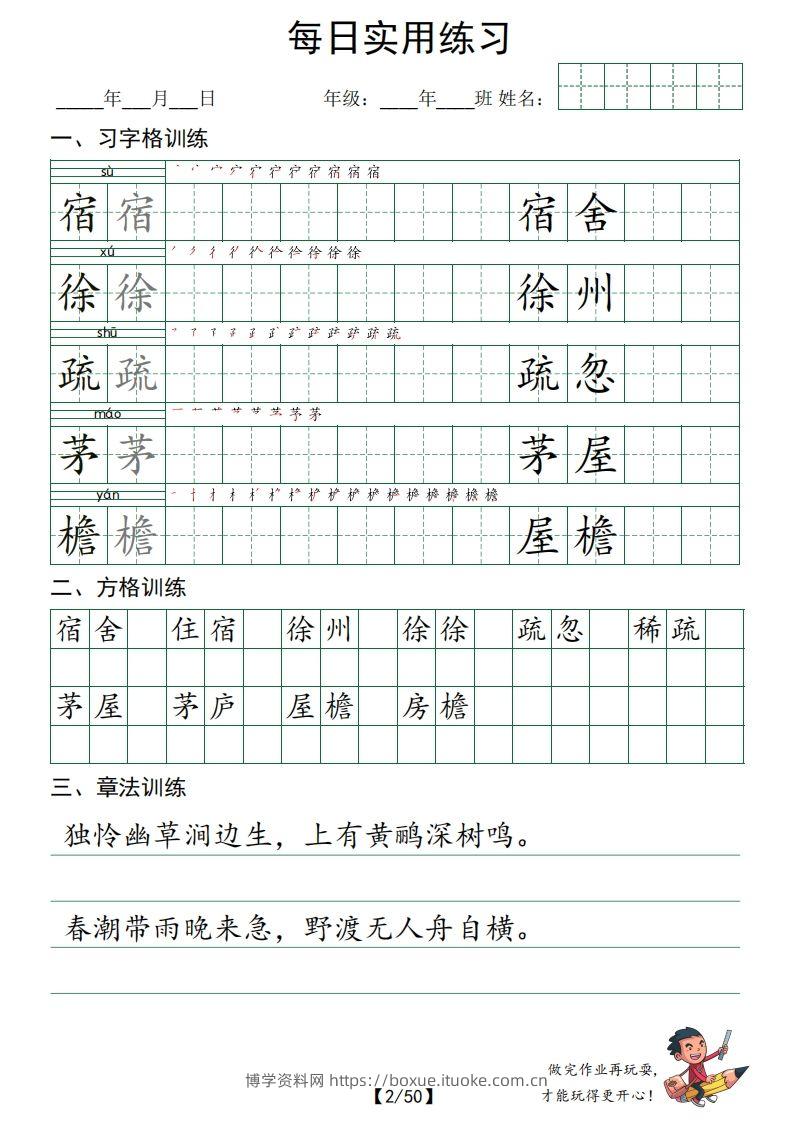 每日实用练习
_____年___月___日 年级：____年____班 姓名：
一、习字格训练
sù
宿 宿 宿 舍
xú
徐 徐 徐 州
shū
疏 疏 疏 忽
máo
茅 茅 茅 屋
yán
檐 檐 屋 檐
二、方格训练
宿 舍 住 宿 徐 州 徐 徐 疏 忽 稀 疏
茅 屋 茅 庐 屋 檐 房 檐
三、章法训练
独怜幽草涧边生，上有黄鹂深树鸣。
春潮带雨晚来急，野渡无人舟自横。
做完作业再玩耍，
才能玩得更开心！
博学资料网 https://boxue.ituoke.com.cn
【2/50】